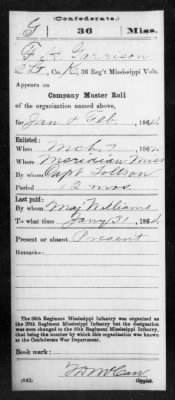 (Confederate.)
G 36 Miss.
F. H. Garrison
2 Lt, Co. K, 36 Reg't Mississippi Vols.
Appears on
Company Muster Roll
of the organization named above,
for Jan & Feb, 1864.
Enlisted:
When Mch 7, 1862.
Where Meridian Miss
By whom Capt
Period 12 mos.
Last paid:
By whom Maj Williams
To what time Jany 31, 1864.
Present or absent Present
Remarks:
The 36th Regiment Mississippi Infantry was organized as
the 28th Regiment Mississippi Infantry but the designation
was soon changed to the 36th Regiment Mississippi Infantry,
that being the number by which this organization was known
at the Confederate War Department.
Book mark:
(642)
Copyist.